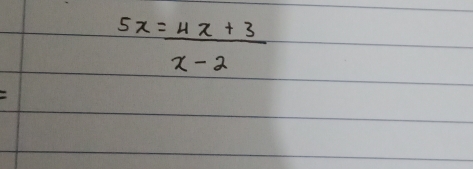 5x = 4x + 3
x - 2
=